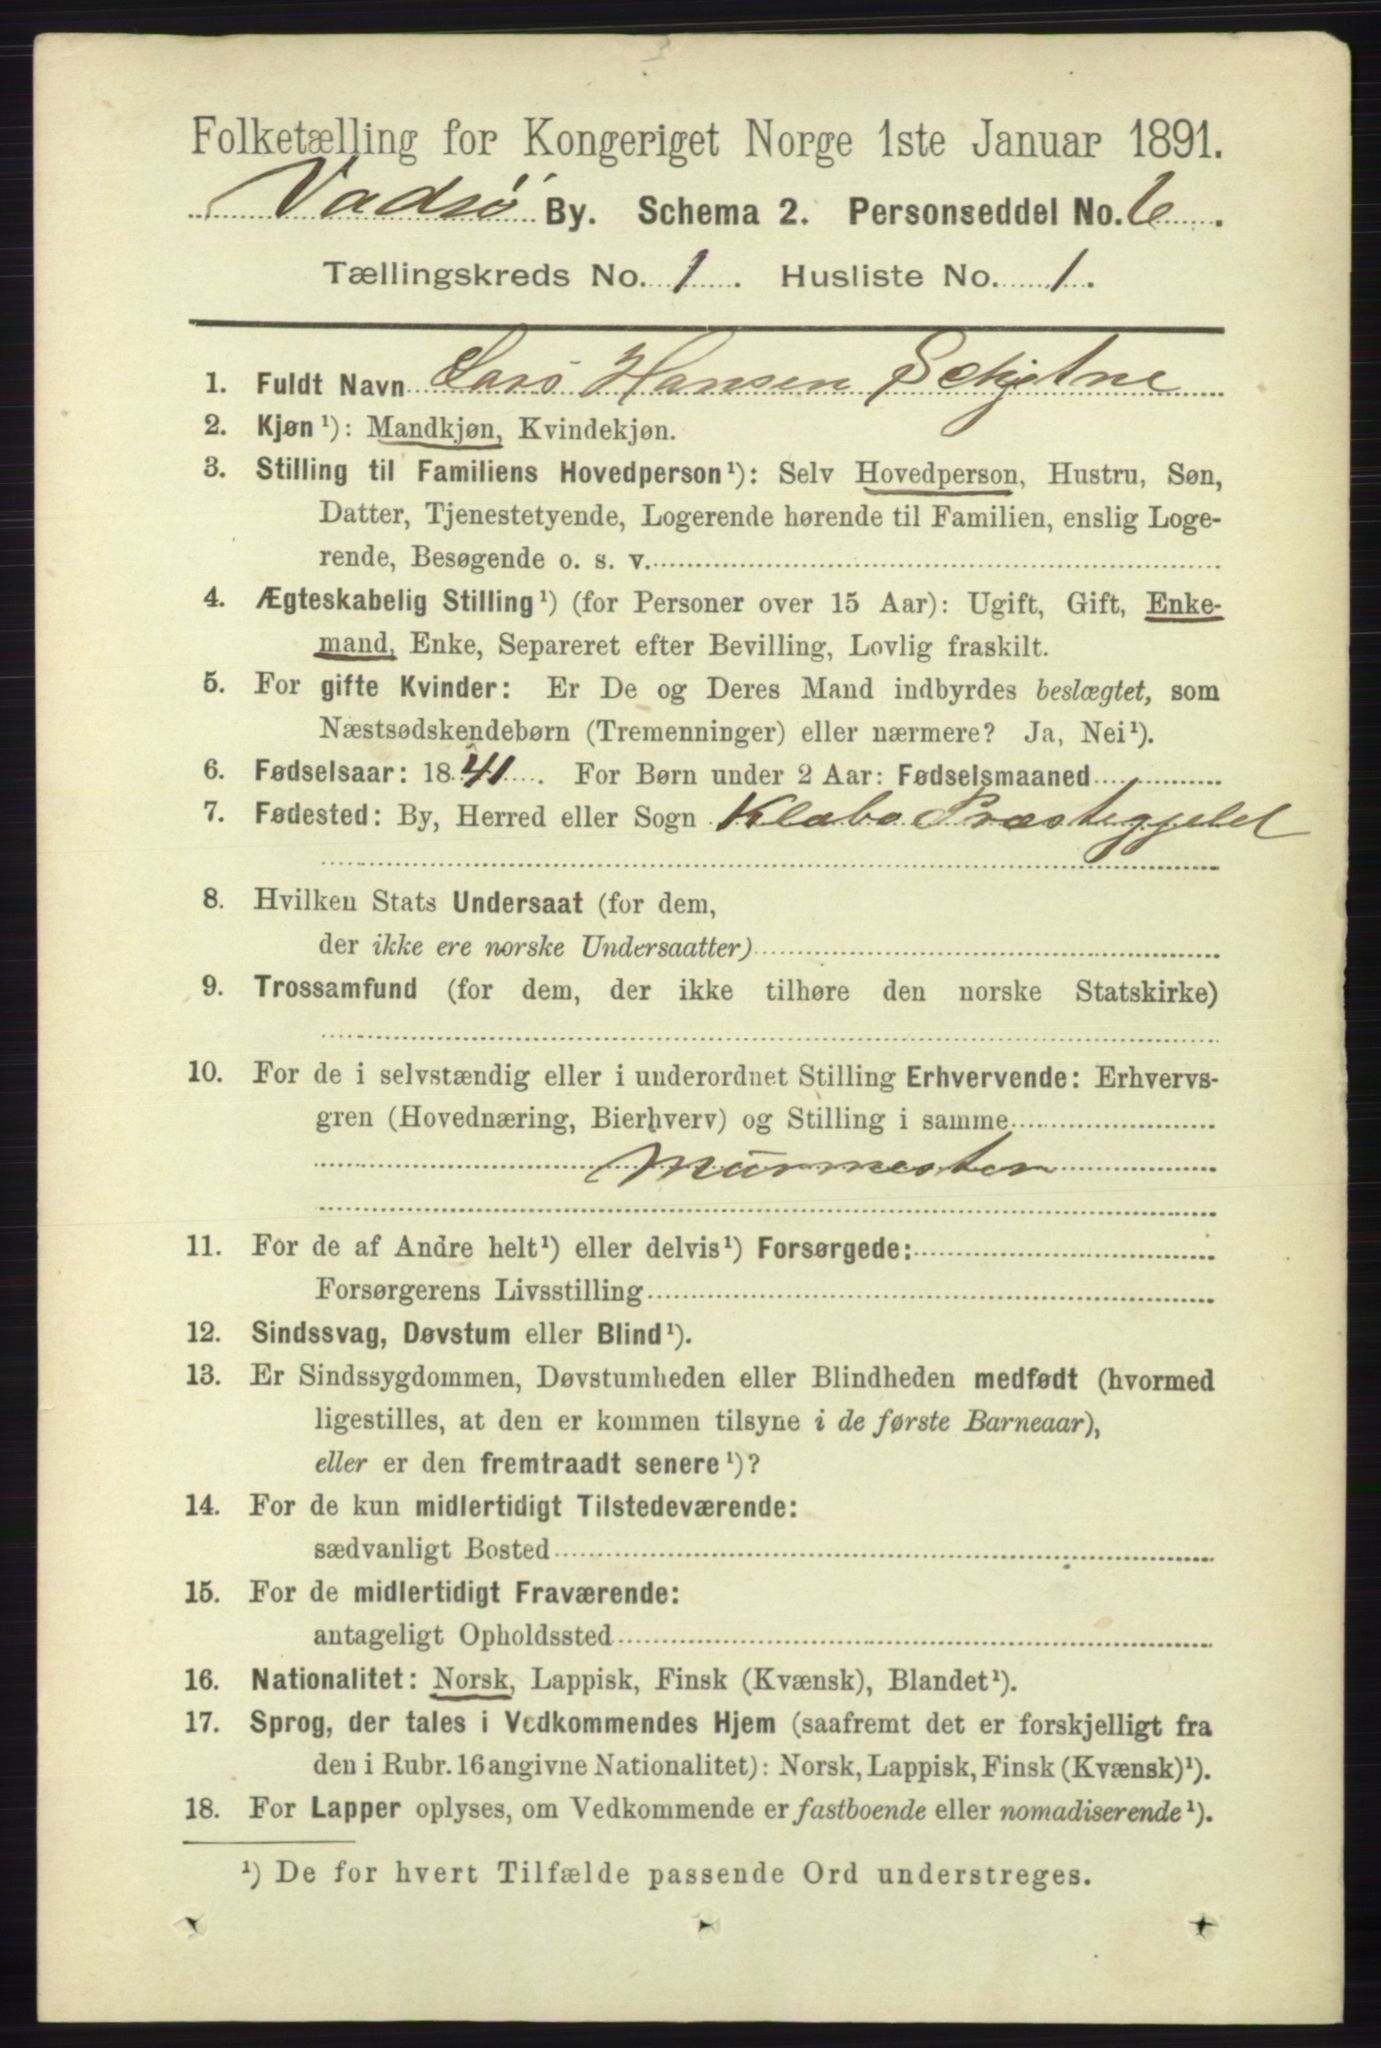 Folketælling for Kongeriget Norge 1ste Januar 1891.
Vadsø By. Schema 2. Personseddel No. 6.
Tællingskreds No. 1. Husliste No. 1.
1. Fuldt Navn Lars Hansen Schjetne
2. Kjøn¹): Mandkjøn, Kvindekjøn.
3. Stilling til Familiens Hovedperson¹): Selv Hovedperson, Hustru, Søn,
Datter, Tjenestetyende, Logerende hørende til Familien, enslig Loge-
rende, Besøgende o. s. v.
4. Ægteskabelig Stilling¹) (for Personer over 15 Aar): Ugift, Gift, Enke-
mand, Enke, Separeret efter Bevilling, Lovlig fraskilt.
5. For gifte Kvinder: Er De og Deres Mand indbyrdes beslægtet, som
Næstsødskendebørn (Tremenninger) eller nærmere? Ja, Nei¹).
6. Fødselsaar: 1841. For Børn under 2 Aar: Fødselsmaaned
7. Fødested: By, Herred eller Sogn Klæbo Præstegjeld
8. Hvilken Stats Undersaat (for dem,
der ikke ere norske Undersaatter)
9. Trossamfund (for dem, der ikke tilhøre den norske Statskirke)
10. For de i selvstændig eller i underordnet Stilling Erhvervende: Erhvervs-
gren (Hovednæring, Bierhverv) og Stilling i samme
Murmester
11. For de af Andre helt¹) eller delvis¹) Forsørgede:
Forsørgerens Livsstilling
12. Sindssvag, Døvstum eller Blind¹).
13. Er Sindssygdommen, Døvstumheden eller Blindheden medfødt (hvormed
ligestilles, at den er kommen tilsyne i de første Barneaar),
eller er den fremtraadt senere¹)?
14. For de kun midlertidigt Tilstedeværende:
sædvanligt Bosted
15. For de midlertidigt Fraværende:
antageligt Opholdssted
16. Nationalitet: Norsk, Lappisk, Finsk (Kvænsk), Blandet¹).
17. Sprog, der tales i Vedkommendes Hjem (saafremt det er forskjelligt fra
den i Rubr. 16 angivne Nationalitet): Norsk, Lappisk, Finsk (Kvænsk)¹).
18. For Lapper oplyses, om Vedkommende er fastboende eller nomadiserende¹).
¹) De for hvert Tilfælde passende Ord understreges.